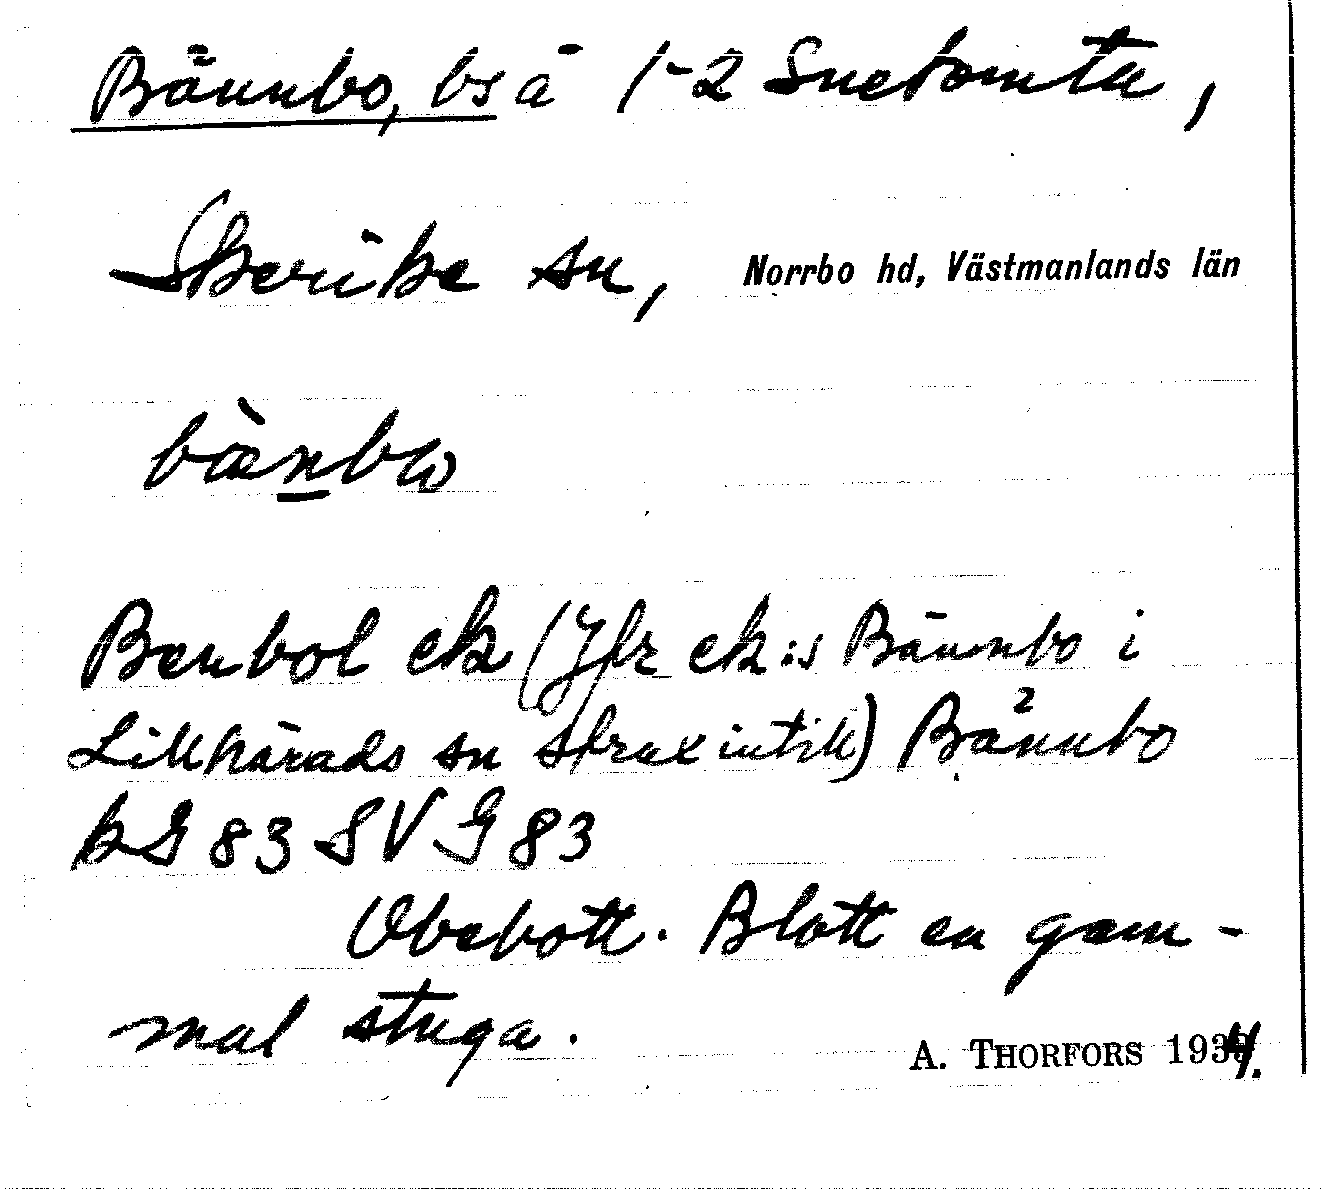 Bännbo, bs å 1-2 Snetomta,
Skerike sn, Norrbo hd, Västmanlands län
bæ̀nbω
Benbol ek (Jfr ek:s Bännbo i
Lillhärads sn strax intill) Bännbo
kG 83 SV G 83
Obebott. Blott en gam-
mal stuga.
A. THORFORS 1934.